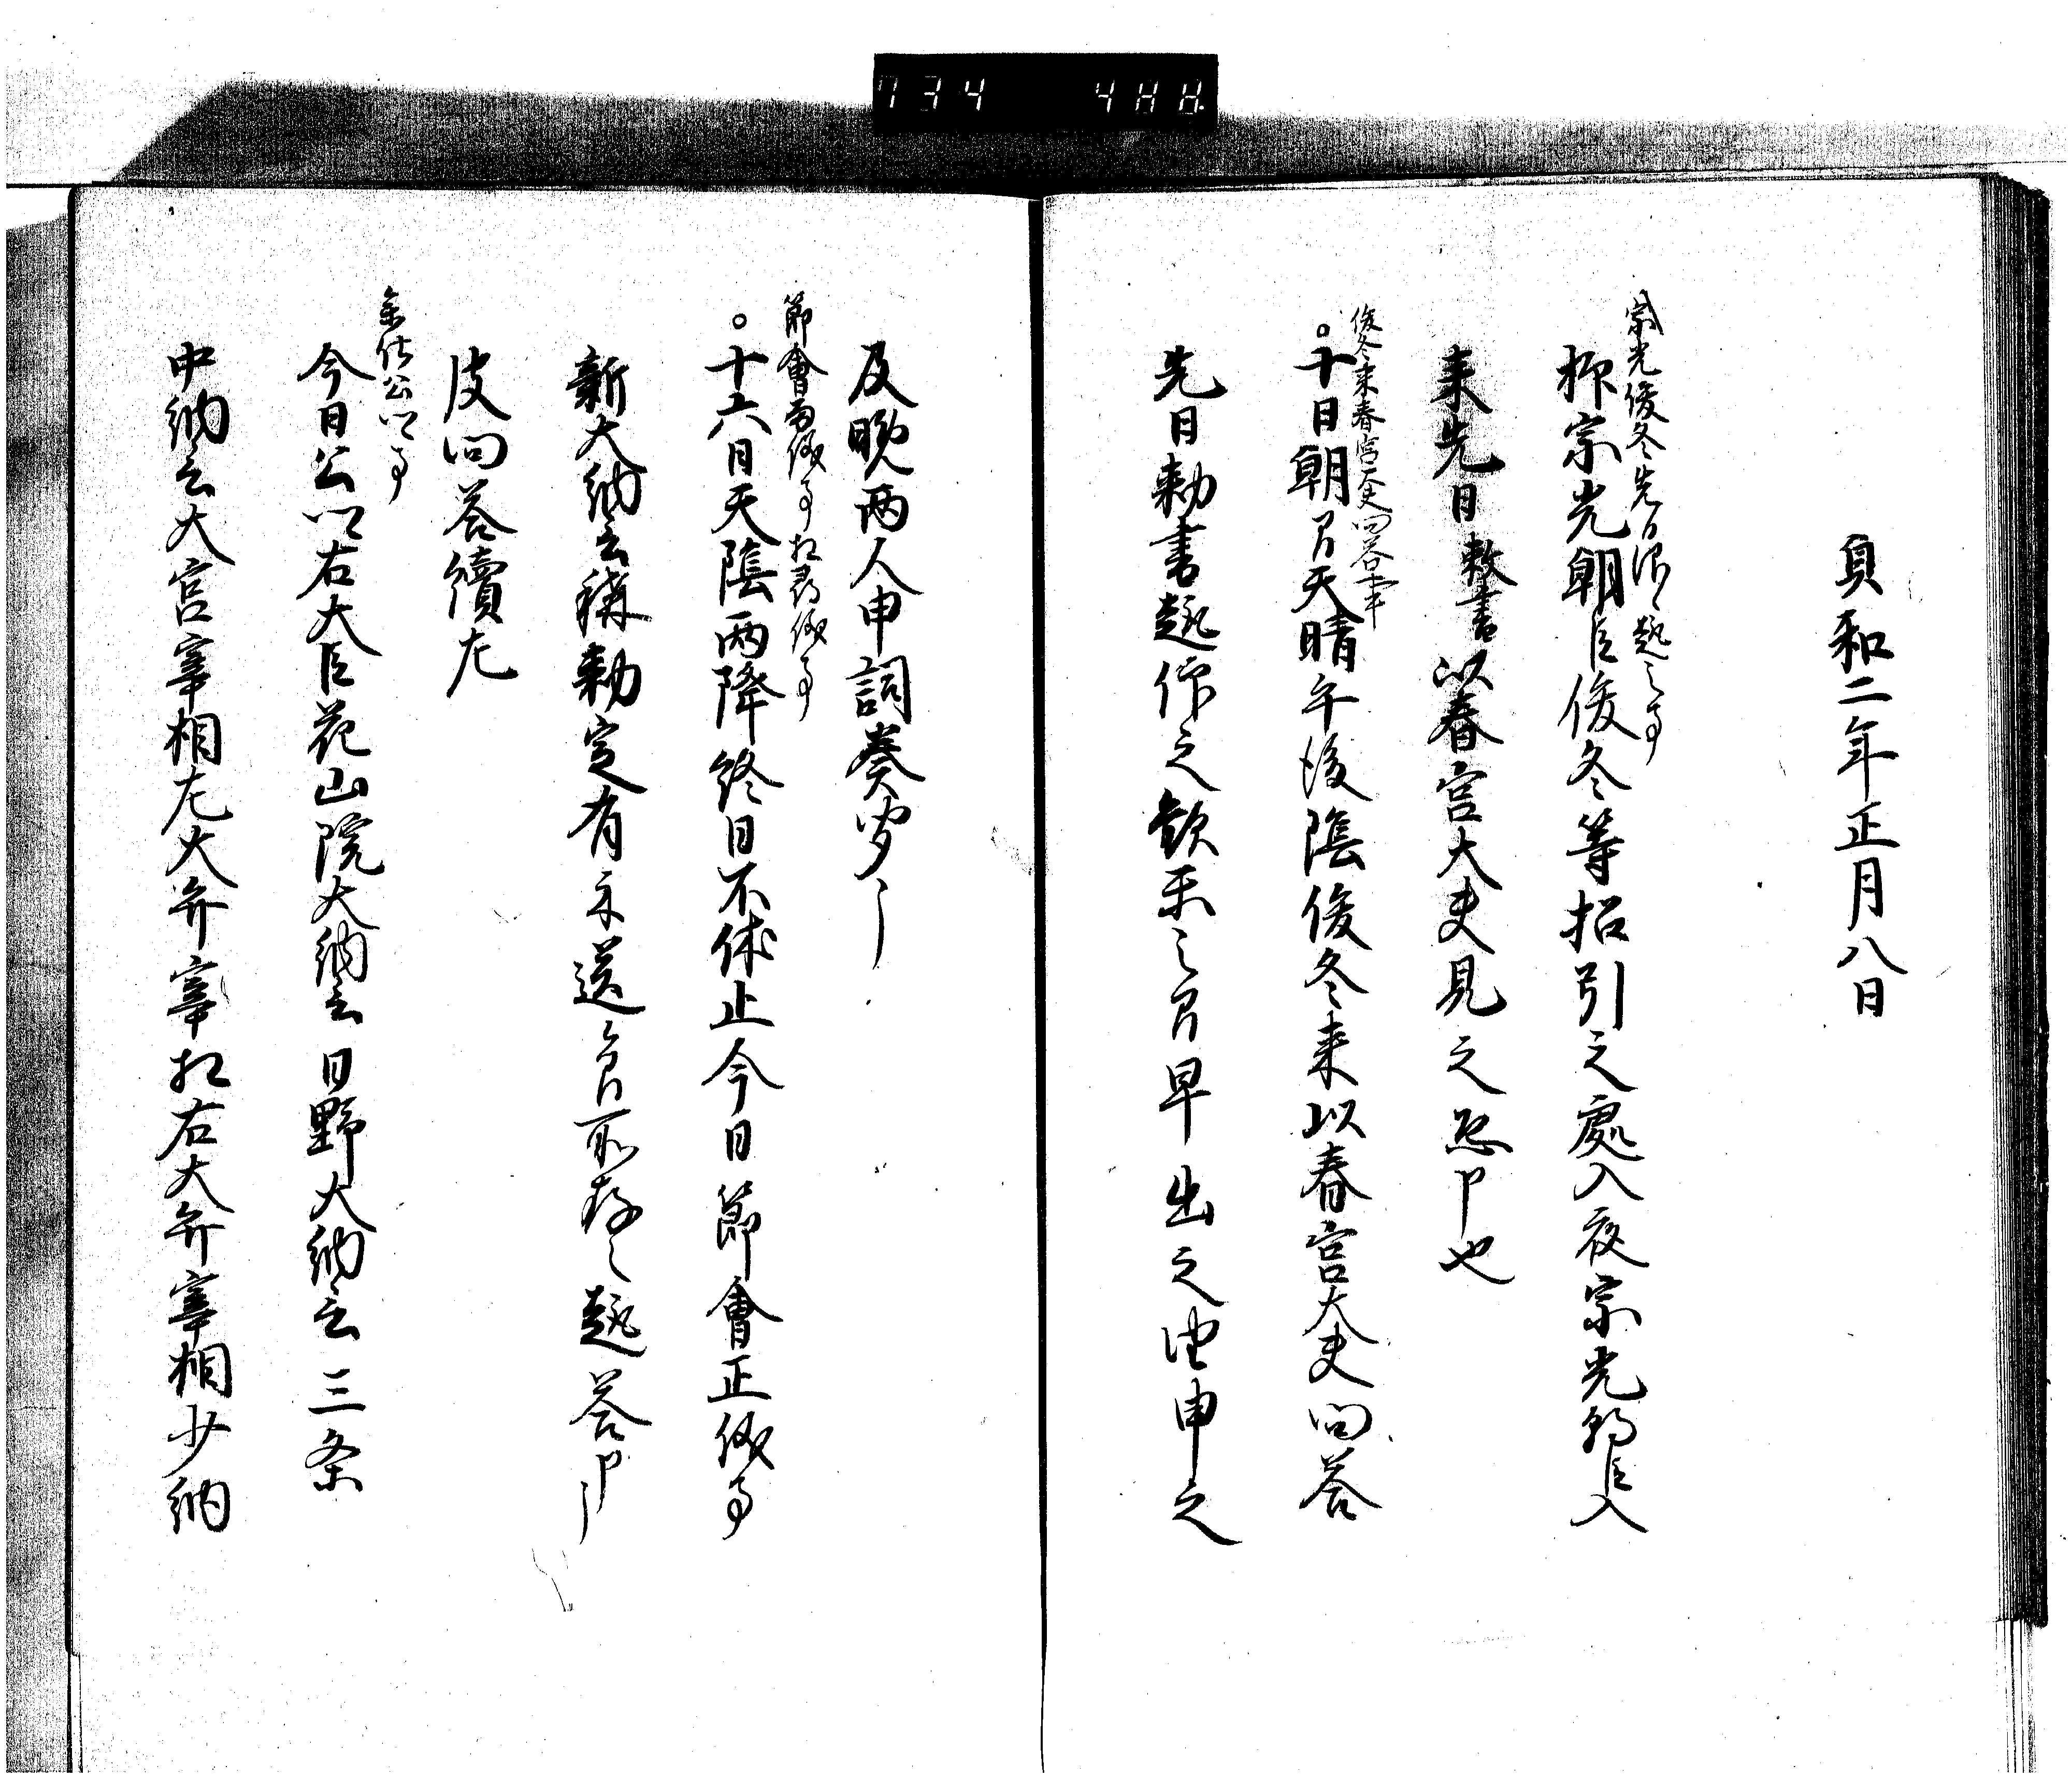 貞和二年正月八日
宗光俊冬先日仰趣之事
抑宗光朝臣俊冬等招引之處入夜宗光朝臣入
来先日勅書以春宮大夫見之恐申也
俊冬来春宮大夫問答事
十日朝間天晴午後陰俊冬来以春宮大夫問答
先日勅書趣仰之歓楽之間早出之由申之
及晩両人申詞奏聞了
節會雨儀事
十六日天陰雨降終日不休止今日節會正儀事
新大納言稱勅定有示送旨所存之趣答申了
皮問答續左
参仕公卿事
今日公卿右大臣花山院大納言日野大納言三条
中納言大宮宰相左大弁宰相右大弁宰相少納